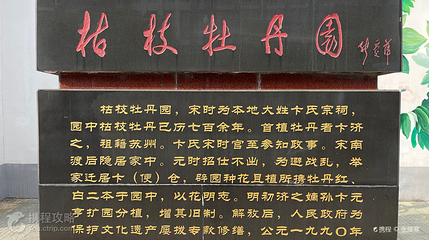 枯枝牡丹园
枯枝牡丹园，宋时为本地大姓卞氏宗祠，
园中枯枝牡丹已历七百余年。首植牡丹者卞济
之，祖籍苏州。卞氏宋时官至参知政事。宋南
渡后隐居家中。元时招仕不出，为避战乱，举
家迁居卞（便）仓，辟园种花且植所携牡丹红、
白二本于园中，以花明志。明初济之嫡孙卞元
亨扩园分植，增其旧制。解放后，人民政府为
保护文化遗产屡拨专款修缮，公元一九九〇年
携程攻略
携程